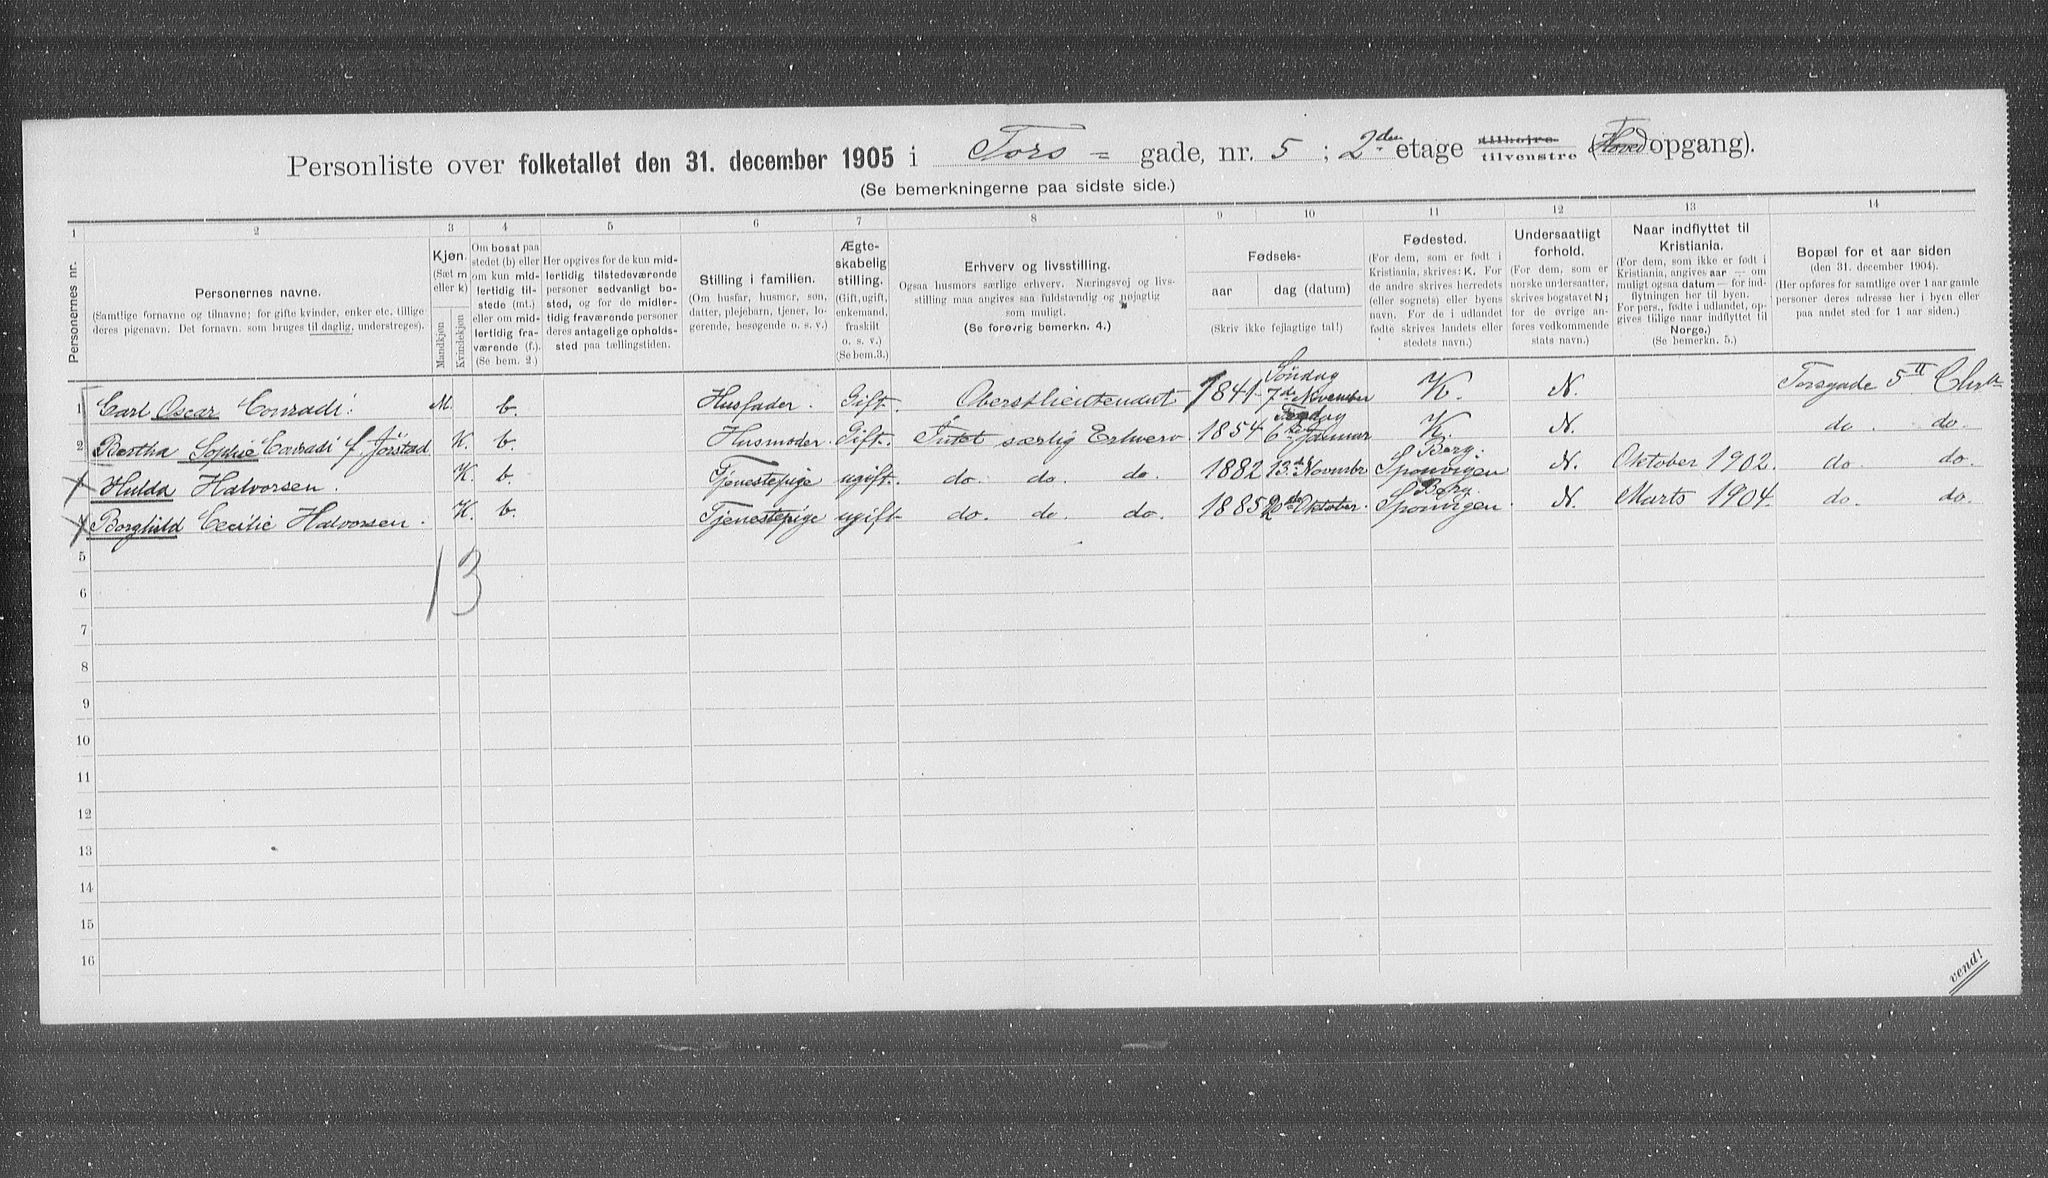 Personliste over folketallet den 31. december 1905 i Tors = gade, nr. 5 ; 2den etage tilhøjre tilvenstre (Hovedopgang).
(Se bemerkningerne paa sidste side.)
1 2 3 4 5 6 7 8 9 10 11 12 13 14
Personernes nr.
Personernes navne.
(Samtlige fornavne og tilnavne; for gifte kvinder, enker etc. tillige
deres pigenavn. Det fornavn. som bruges til daglig, understreges).
Kjøn.
(Sæt m
eller k)
Mandkjøn
Kvindekjøn
Om bosat paa
stedet (b) eller
om kun mid-
lertidig til-
stede (mt.)
eller om mid-
lertidig fra-
værende (f.).
(Se bem. 2.)
Her opgives for de kun mid-
lertidig tilstedeværende
personer sedvanligt bo-
sted, og for de midler-
tidig fraværende personer
deres antagelige opholds-
sted paa tællingstiden.
Stilling i familien.
(Om husfar, husmor, søn,
datter, plejebarn, tjener, lo-
gerende, besøgende o. s. v.)
Ægte-
skabelig
stilling.
(Gift, ugift,
enkemand,
fraskilt
o. s. v.)
(Se bem.3.)
Erhverv og livsstilling.
Ogsaa husmors særlige erhverv. Næringsvej og livs-
stilling maa angives saa fuldstændig og nøjagtig
som muligt.
(Se forøvrig bemerkn. 4.)
Fødsels-
aar
dag (datum)
(Skriv ikke fejlagtige tal!)
Fødested.
(For dem, som er født i
Kristiania, skrives: K. For
de andre skrives herredets
(eller sognets) eller byens
navn. For de i udlandet
fødte skrives landets eller
stedets navn.)
Undersaatligt
forhold.
(For dem, som er
norske undersaatter,
skrives bogstavet N;
for de øvrige an-
føres vedkommende
stats navn.)
Naar indflyttet til
Kristiania.
(For dem, som ikke er født i
Kristiania, angives aar — om
muligt ogsaa datum — for ind-
flytningen her til byen.
For pers., fødte i udlandet, op-
gives tillige naar indflyttet til
Norge.)
(Se bemerkn. 5.)
Bopæl for et aar siden
(den 31. december 1904).
(Her opføres for samtlige over 1 aar gamle
personer deres adresse her i byen eller
paa andet sted for 1 aar siden.)
1 Carl Oscar Conradi. M. b. Husfader. Gift. Oberstlieutenant 1841 Søndag 7de November K. N. Torsgade 5 II Chra
2 Bertha Sophie Conradi f. Jörstad K. b. Husmoder. Gift. Intet særlig Erhverv 1854 6te Januar K. N. do. do.
Hulda Halvorsen. K. b. Tjenestepige ugift. do. do. do. 1882 13de Novembr Berg: Sponvigen N. Oktober 1902. do. do.
Borghild Cecilie Halvorsen. K. b. Tjenestepige ugift do. do. do. 1885 Oktober. Berg. Sponvigen N. Marts 1904. do. do.
1 3
5
6
7
8
9
10
11
12
13
14
15
16
vend!